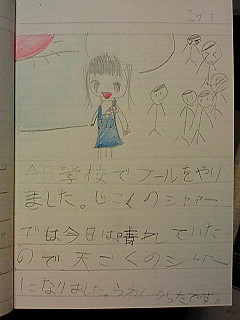 今日学校でプールをやり
ました。じごくのシャワー
では今日は晴れていた
ので天ごくのシャワー
になりました。うれしかったです。